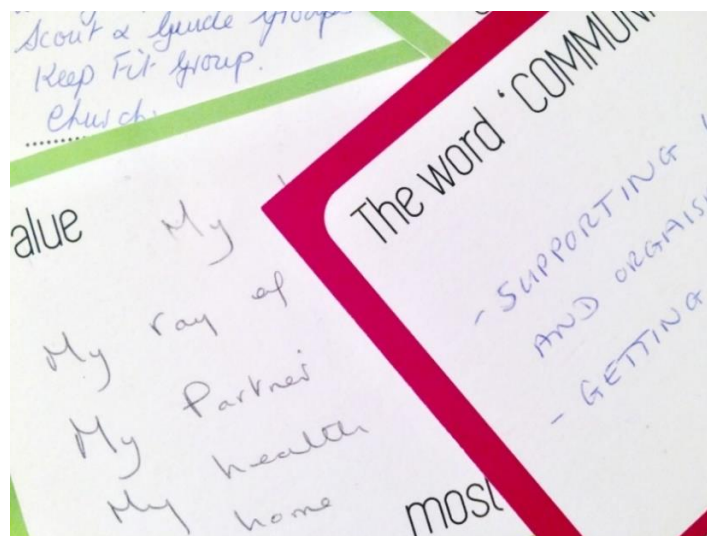 Scout & Guide groups
Keep Fit group.
Church.
alue
My
My ray of
My Partner
My health
My home
most
The word ‘COMMUNI
- SUPPORTING
AND ORGAIS
- GETTING